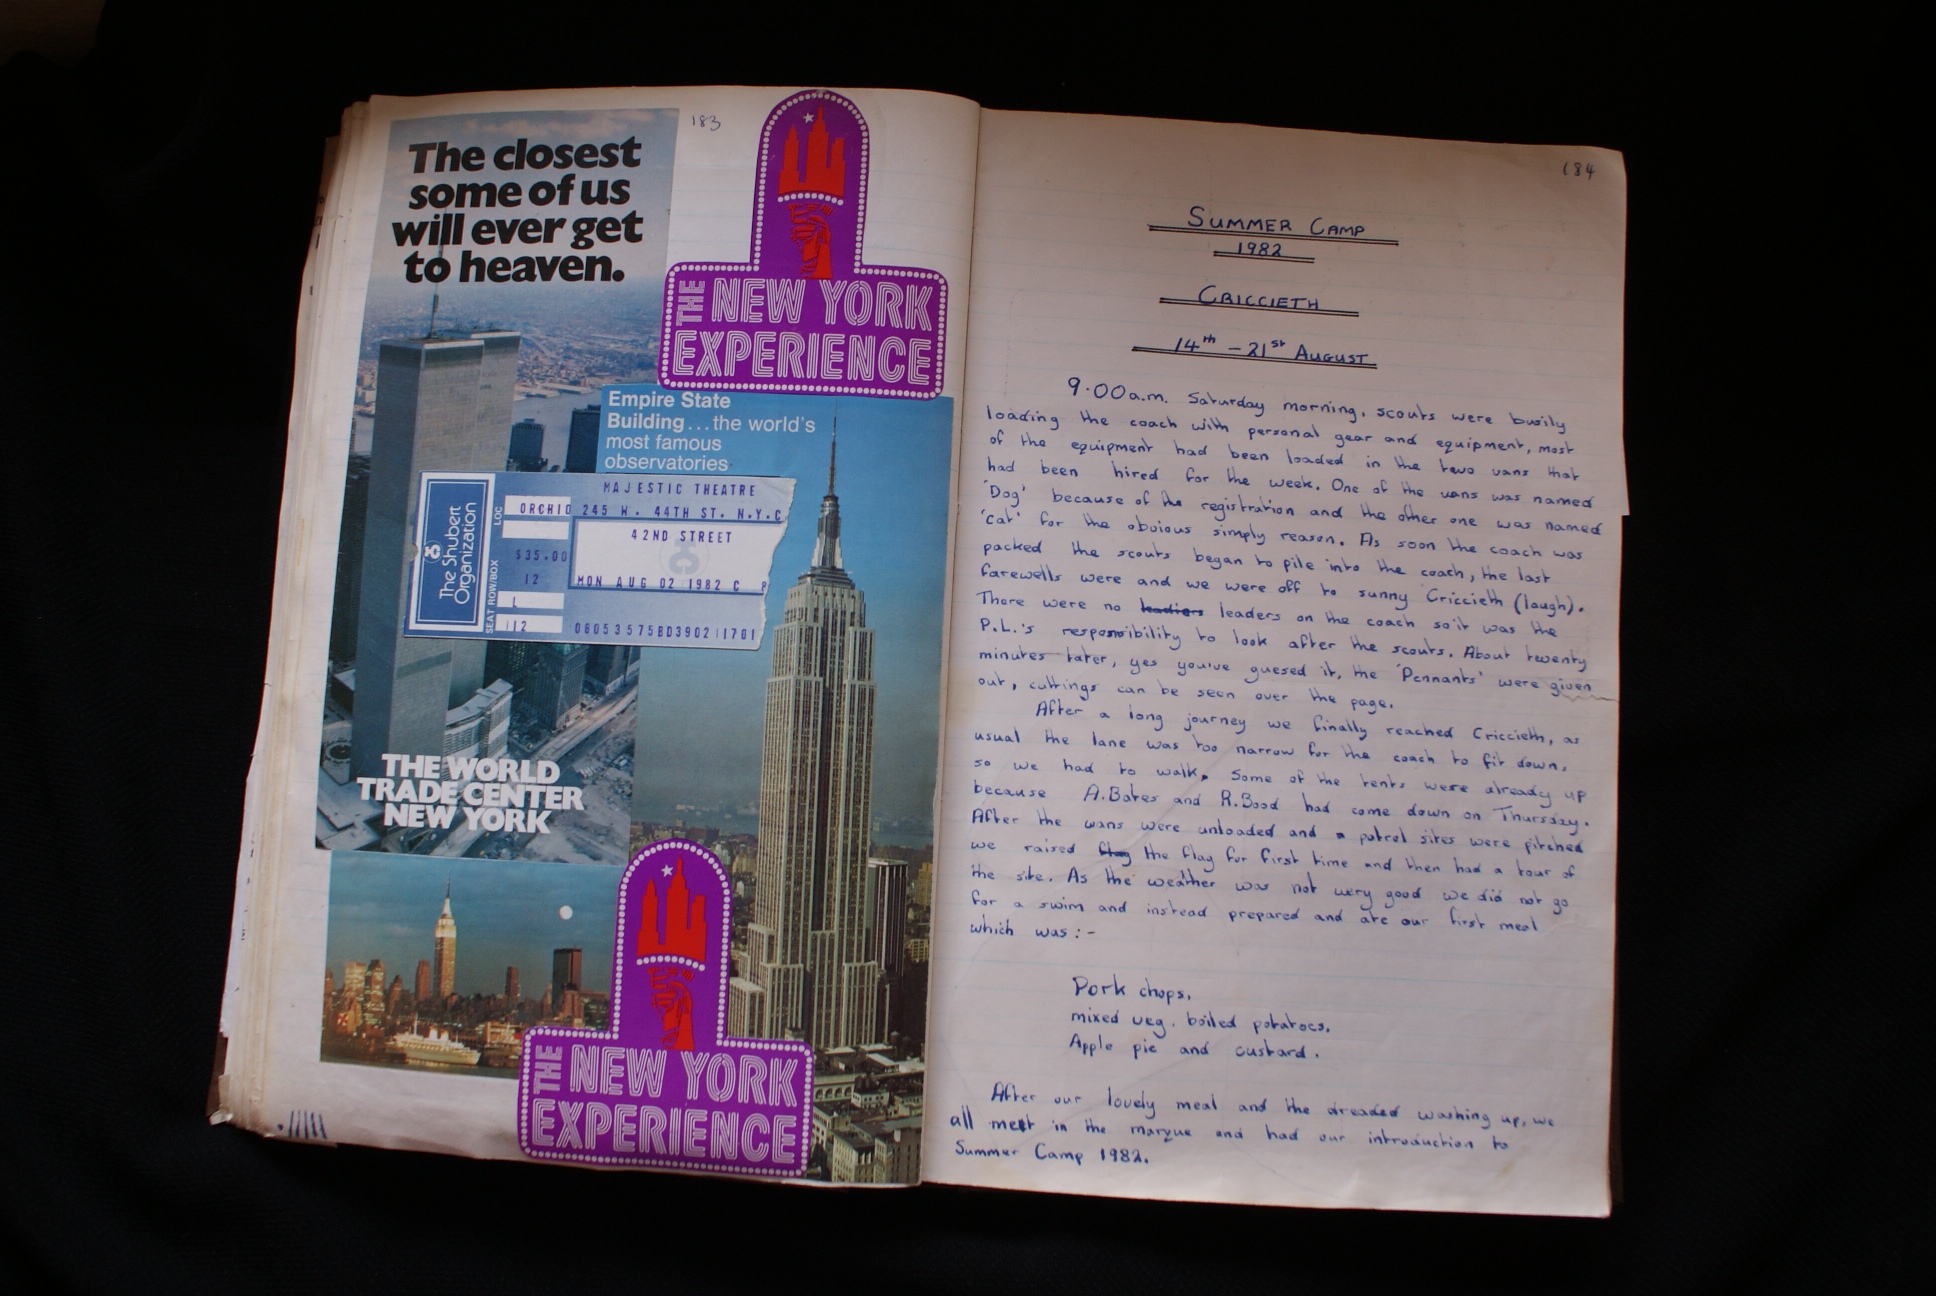 183
The closest
some of us
will ever get
to heaven.
THE NEW YORK
EXPERIENCE
Empire State
Building...the world's
most famous
observatories
The Shubert
Organization
LOC
SEAT ROW/BOX
MAJESTIC THEATRE
ORCHIO 245 W. 44TH ST. N.Y.C
42ND STREET
$35.00
12
MON AUG 02 1982 C
L
112
06053575BD3902 1701
THE WORLD
TRADE CENTER
NEW YORK
THE NEW YORK
EXPERIENCE
184
SUMMER CAMP
1982
CRICCIETH
14th - 21st AUGUST
9.00a.m. Saturday morning, scouts were busily
loading the coach with personal gear and equipment, most
of the equipment had been loaded in the two vans that
had been hired for the week. One of the vans was named
'Dog' because of the registration and the other one was named
'cat' for the obvious simply reason. As soon the coach was
packed the scouts began to pile into the coach, the last
farewells were and we were off to sunny Criccieth (laugh).
There were no leadiers leaders on the coach so it was the
P.L.'s responsibility to look after the scouts. About twenty
minutes later, yes youve guesed it, the 'Pennants' were given
out, cuttings can be seen over the page.
After a long journey we finally reached Criccieth, as
usual the lane was too narrow for the coach to fit down,
so we had to walk. Some of the tents were already up
because A.Bates and R.Bood had come down on Thursday.
After the vans were unloaded and a patrol sites were pitched
we raised flag the flag for first time and then had a tour of
the site. As the weather was not very good we did not go
for a swim and instead prepared and ate our first meal
which was :-
Pork chops,
mixed veg. boiled potatoes.
Apple pie and custard.
After our lovely meal and the dreaded washing up, we
all meet in the marque and had our introduction to
Summer Camp 1982.